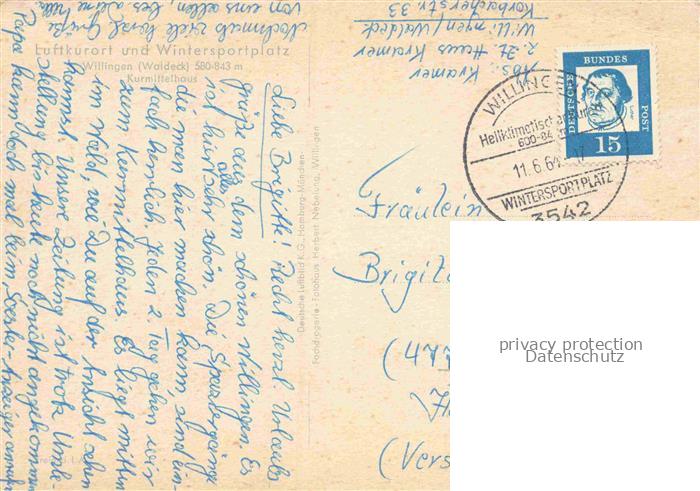 Luftkurort und Wintersportplatz
Willingen (Waldeck) 580-843 m
Kurmittelhaus
Liebe Brigitte! Recht herzl. Urlaubs-
grüße aus dem schönen Willingen. Es
ist hier sehr schön. Die Spaziergänge
die man hier machen kann, sind ein-
fach herrlich. Jeden 2 Tag gehen wir
zum Kurmittelhaus. Es liegt mitten
im Wald, wie Du auf der Ansicht sehen
kannst. Unsere Zeitung ist trotz Umbe-
stellung bis heute noch nicht angekommen
Papa kann doch mal beim Soester-Anzeiger
Nochmals viele herzl. Grüße
von uns allen, bes.
Abs. Kramer
z. Zt. Haus Kramer
Willingen/Waldeck
Korbacherstr. 33
Deutsche Luftbild K.G., Hamburg-München
Fachdrogerie - Fotohaus Herbert Nebelung, Willingen
DEUTSCHE
BUNDES
POST
15
Luther
WILLINGEN
Heilklimatischer
600-84
11.6.64
17
WINTERSPORTPLATZ
3542
Fräulein
(Vers
privacy protection
Datenschutz